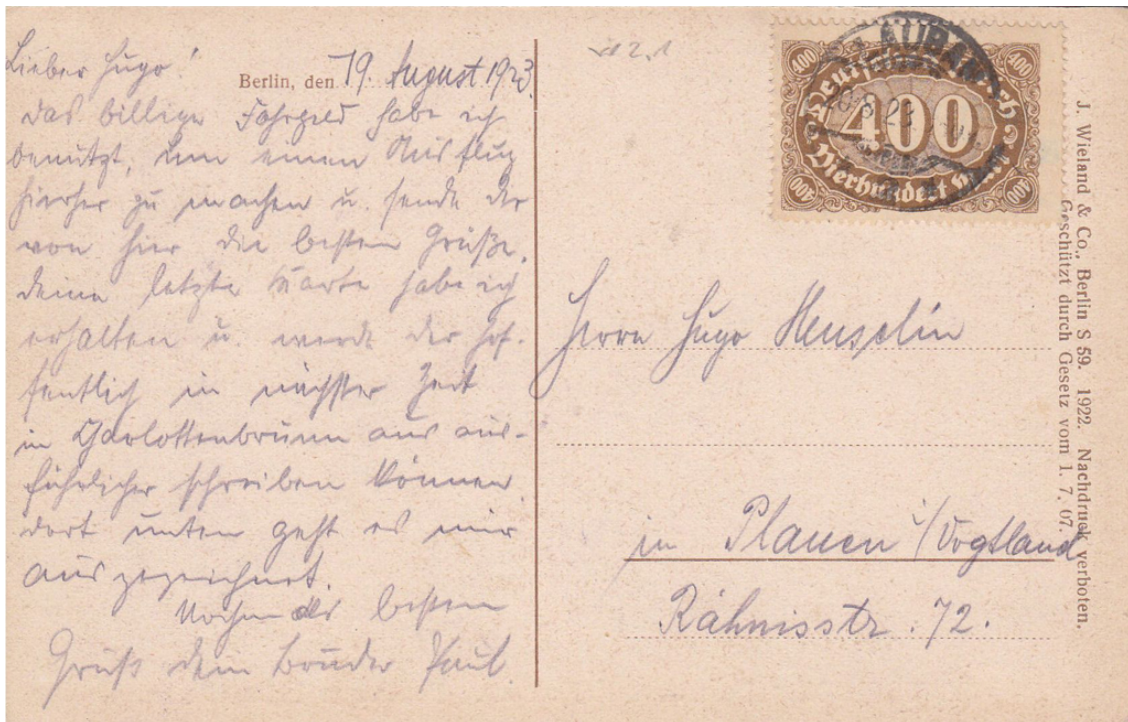 Lieber Hugo!
Berlin, den 19. August 1923.
das billige Fahrgeld habe ich
benützt, um einen Ausflug
hierher zu machen u. sende dir
von hier die besten Grüße.
deine letzte Karte habe ich
erhalten u. werde dir hof-
fentlich in nächster Zeit
in Charlottenbrunn aus aus-
führlicher schreiben können.
dort unten geht es mir
ausgezeichnet.
Nochmals besten
Gruß dein Bruder Paul.
400 400
Deutsches Reich
400
Vierhundert Mark
400 400
LAUBAN
20.8.23
Herrn Hugo Henselin
in Plauen i/Vogtland
Rähnisstr. 72.
J. Wieland & Co., Berlin S 59. 1922. Nachdruck verboten.
Geschützt durch Gesetz vom 1. 7. 07.